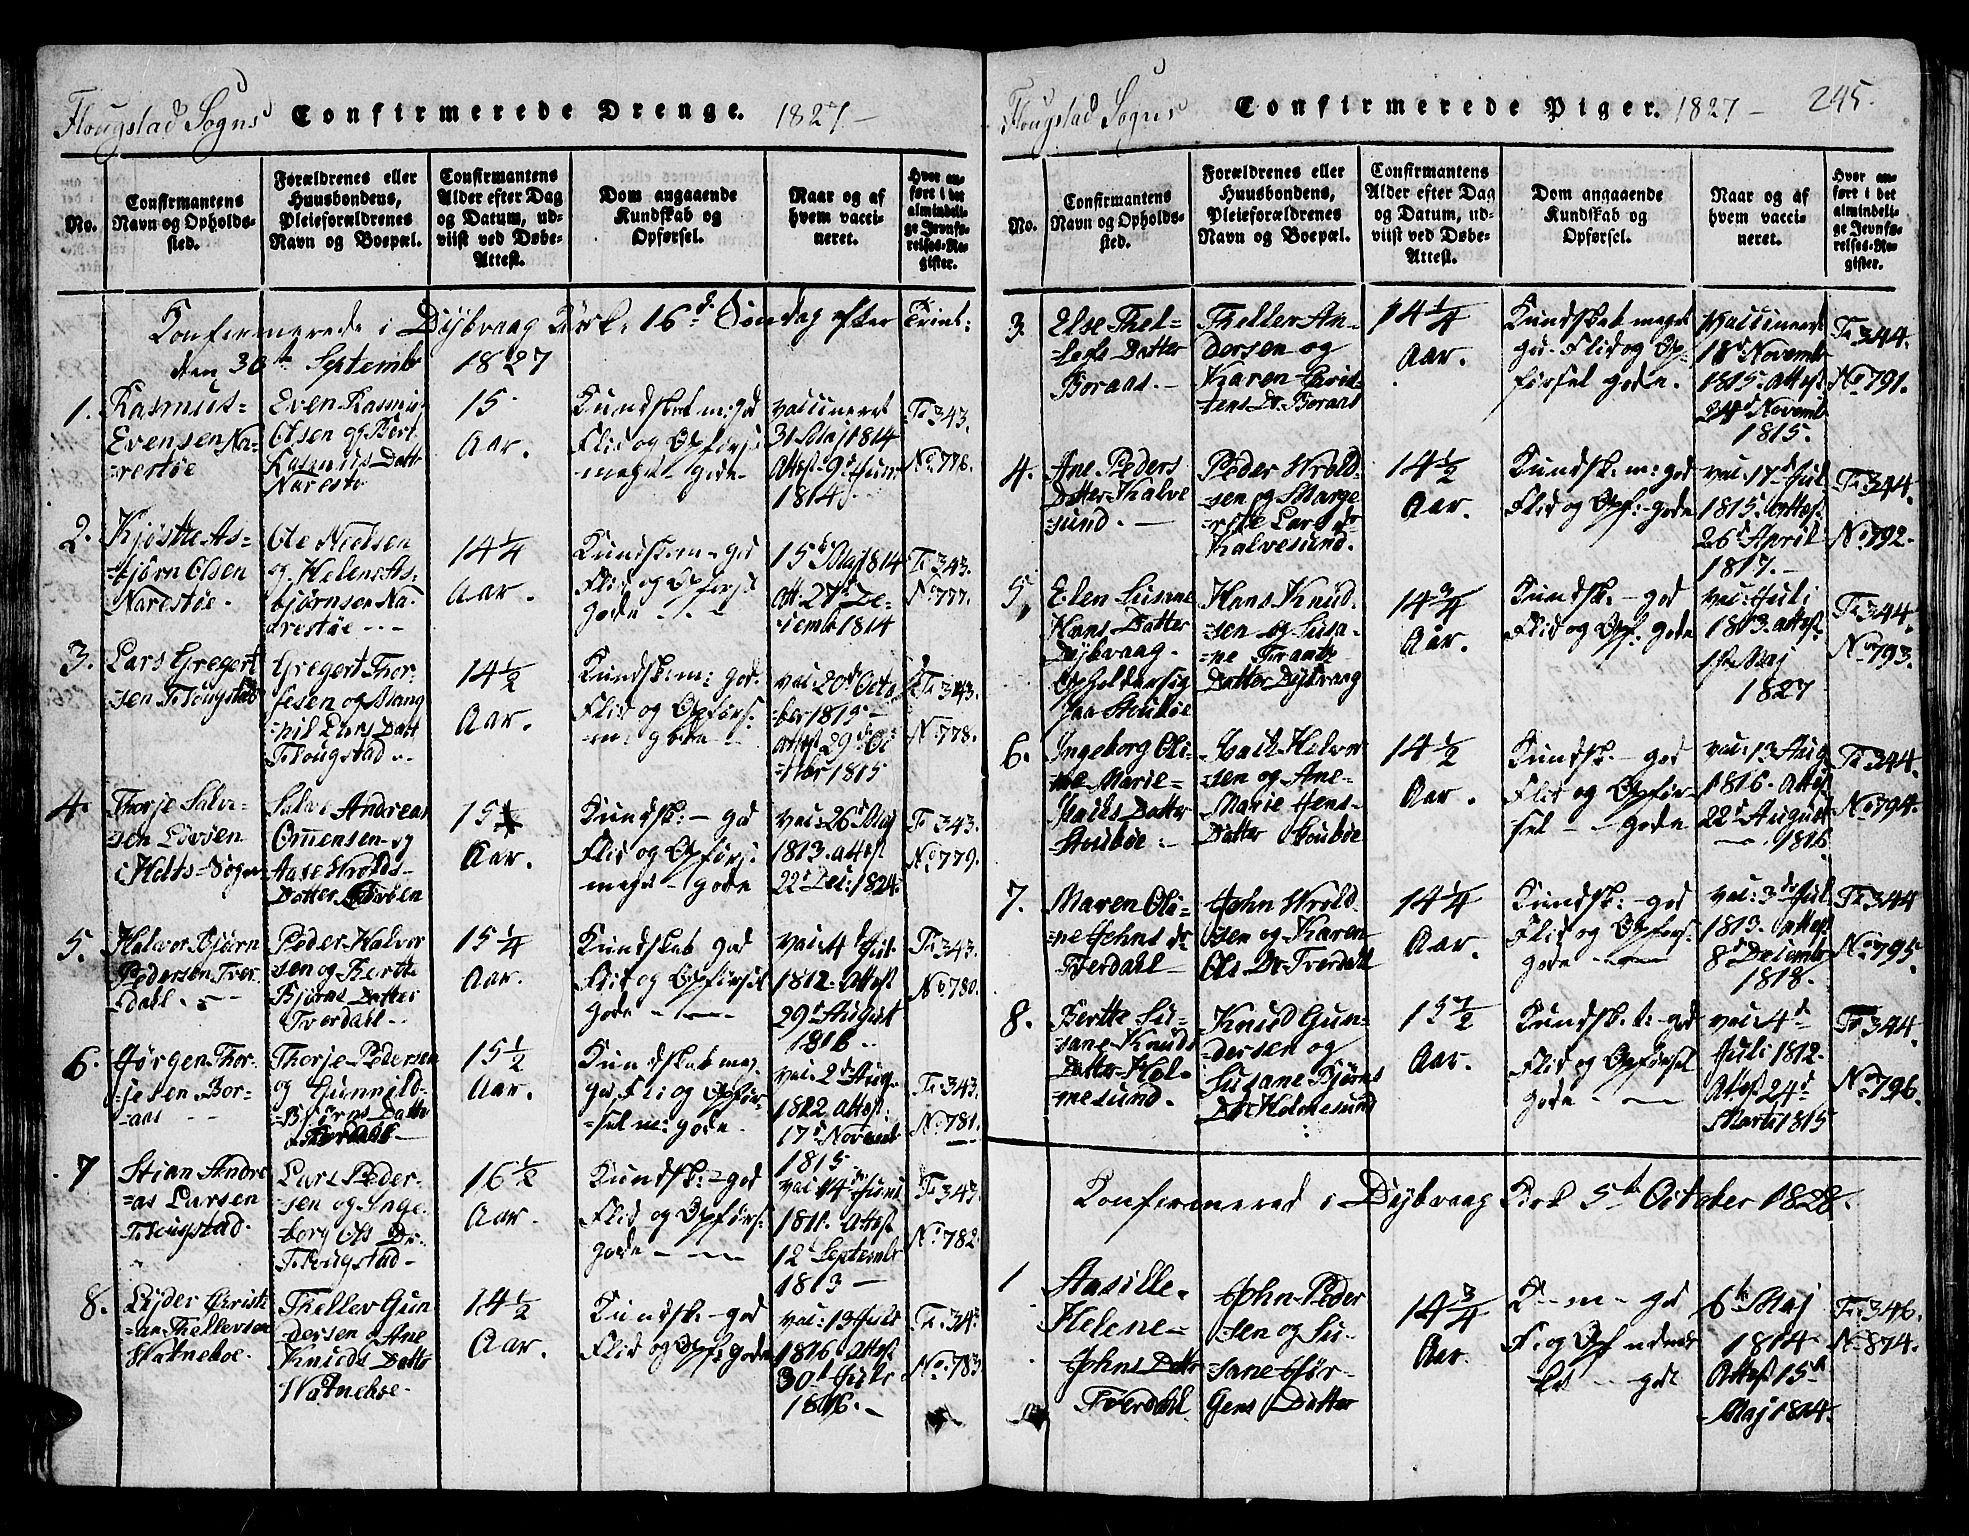 Flougstad Sogns Confirmerede Drenge. 1827 –
No.
Confirmantens
Navn og Opholds-
sted.
Forældrenes eller
Huusbondens,
Pleieforældrenes
Navn og Boepæl.
Confirmantens
Alder efter Dag
og Datum, ud-
viist ved Døbe-
Attest.
Dom angaaende
Kundskab og
Opførsel.
Naar og af
hvem vacci-
neret.
Hvor an-
ført i det
almindeli-
ge Jevnfø-
relses-Re-
gister.
Konfirmerede i Dÿbvaag Kirk: 16d Søndag efter Trinit:
den 30te Septembr 1827
1.
Rasmus
Evensen Na-
restøe
Even Rasmus
Olsen og Bert
Rasmus Datt
Narestø
15
Aar.
Kundskab m: god
Flid og Opførs:
meget – gode
vaccineret
31 Maj 1814
Attest 9d Juni
1814.
Fo 343.
No 776.
2.
Kjøstte As-
bjørn Olsen
Narestøe.
Ole Nielsen
og Helene As-
bjørnsen Na-
restøe
14 1/4
Aar.
Kundsk m – god
Flid og Opførs:
gode
15d Maj 1814
Att: 27d De-
cembr 1814
Fo 343.
No 777.
3.
Lars Gregert
sen Flougstad
Gregert Thor-
sen og Mang
nil Lars Datt
Flougstad
14 1/2
Aar.
Kundsk: m: god
Flid og Opførs:
m: gode
vac: 20d Octo
ber 1815
Attest 29d Oc
tbr 1815
Fo 343.
No 778.
4.
Thorje Salve-
sen
i Holts Sogn
Salve Andreas
Omensen og
Aase Wrolds-
Datter
15
Aar.
Kundsk: – god
Flid og Opførs:
meget – gode
vac: 26d Maj
1813. Attest
22d Dec: 1824.
Fo 343.
No 779.
5.
Halvor Bjørn
Pedersen Tver-
dall.
Peder Halvor
sen og Berte
Bjørns Datter
Tverdall
15 1/4
Aar.
Kundskab god
Flid og Opførsel
gode
vac: 4d Juli
1812. Attest
29d August
1816
Fo 343.
No 780.
6.
Jørgen Thor-
jesen Bor-
aas
Thorje Pedersen
og Gunnild
Bjørns Datter
15 1/2
Aar.
Kundskab me-
get, Flid og Opfør-
sel m: gode.
vac: 2d Aug.
1812 Attest:
17d Novemb
1815
Fo 343.
No 781.
7
Stian Andre
as Larsen
Flougstad.
Lars Peder-
sen og Inge-
borg Ols Dr
Flougstad
16 1/2
Aar.
Kundsk: – god
Flid og Opførs:
gode
vac: 14d Juni
1811. Attest
12d Septembr
1813
Fo 343.
No 782.
8.
Lÿder Christi
an Thellevsen
Watneboe.
Thellev Gun
dersen og Ane
Knuds Datter
Watneboe
14 1/2
Aar.
Kundsk: – god
Flid og Opf: gode
vac: 13 Juli
1816 Attest
30d Juli
1816.
Fo 343.
No 783.
Flougstad Sogns Confirmerede Piger. 1827 – 245.
No.
Confirmantens
Navn og Opholds-
sted.
Forældrenes eller
Huusbondens,
Pleieforældrenes
Navn og Boepæl.
Confirmantens
Alder efter Dag
og Datum, ud-
viist ved Døbe-
Attest.
Dom angaaende
Kundskab og
Opførsel.
Naar og af
hvem vacci-
neret.
Hvor an-
ført i det
almindeli-
ge Jevnfø-
relses-Re-
gister.
3.
Else Thel-
lefs Datter
Boraas.
Thellef An-
dersen og
Karen Chris-
tens Dr Boraas
14 1/4
Aar.
Kundskab meget
gd. Flid og Op-
førsel gode.
Vaccineret
18d Novembr
1815. Attest
24d Novemb
1815.
Fo 344.
No 791.
4.
Ane Peders
Datter Kalve
sund.
Peder Wrold-
sen og Marge
rite Lars dr
Kalvesund.
14 1/2
Aar.
Kundsk: m: god
Flid og Opf: gode
vac: 17d Juli
1815. Attest
26d April
1817.
Fo 344.
No 792.
5,
Elen Susane
Hans Datter
Dÿbvaag.
Opholder sig
paa Stoubøe
Hans Knud
sen og Susa-
ne Frantz
Datter Dÿbvaag
14 3/4
Aar.
Kundsk: – god
Flid og Opf: gode
vac: Juli
1813. Attest
Maj
1827
Fo 344.
No 793.
6.
Ingeborg Oli-
ne Marie
Datter
Stoubøe
Halvor
sen og Ane
Marie Jens
Datter Stoubøe
14 1/2
Aar.
Kundsk: – god
Flid og Opfør-
sel – gode
vac: 13 Aug
1816. Attest
22d August
1816
Fo 344.
No 794.
7.
Maren Oli-
ne Johns dr
Tverdall
John Wrold
sen og Karen
Ols Dr Tverdall
14 1/4
Aar.
Kundsk: – god
Flid og Opførs:
gode
vac: 3d Juli
1813. Attest
8d Decembr
1818.
Fo 344
No 795.
8.
Berthe Su-
sane Knuds
Datter Hol-
mesund.
Knud Gun-
dersen og
Susane Bjørns
Dr Holmesund
15 1/2
Aar.
Kundsk. t: god
Flid og Opførsel
gode
vac: 4d
Juli 1812.
Attest 24d
Marti 1815
Fo 344.
No 796.
Konfirmered i Dÿbvaag Kirk 5te October 1828.
1
Aasille
Helene
Johns Datt
Tverdahl.
John Peder
sen og Su-
sane Jør-
gens Datter
14 3/4
Aar.
K – m – god
F. og Opf udmær
ket – god
6te Maj
1814
Attest 15d
Maj 1814.
Fo 346.
No 874.